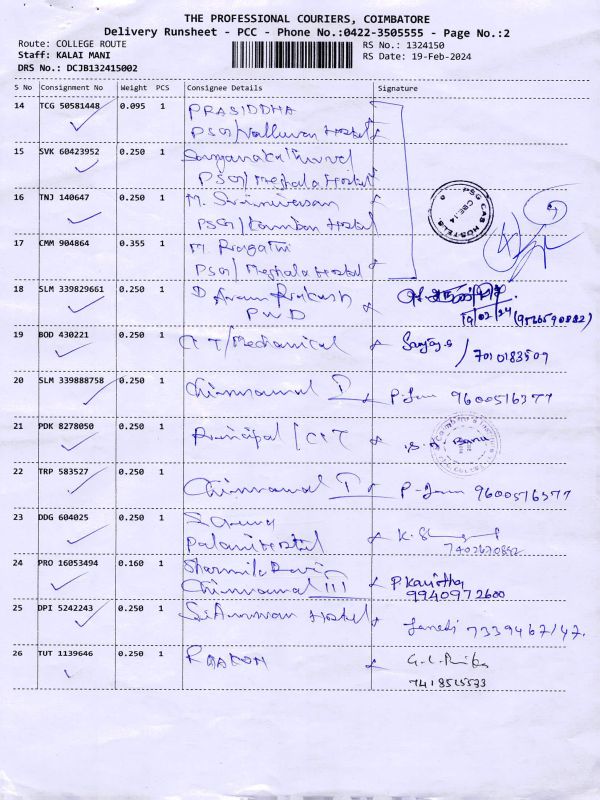 THE PROFESSIONAL COURIERS, COIMBATORE
Delivery Runsheet - PCC - Phone No.:0422-3505555 - Page No.:2
Route: COLLEGE ROUTE RS No.: 1324150
Staff: KALAI MANI RS Date: 19-Feb-2024
DRS No.: DCJB132415002
S No Consignment No Weight PCS Consignee Details Signature
14 TCG 50581448 0.095 1 PRASIDDHA
PSG/Valluvar Hostel
15 SVK 60423952 0.250 1
PSG/Meghala Hostel
16 TNJ 140647 0.250 1 M. Srinivasan
PSG/Kamban Hostel
PSG CAS HOSTELS CBE.14
17 CMM 904864 0.355 1 M Pragathi
PSG/Meghala Hostel
18 SLM 339829661 0.250 1 D Arun Prakash
PWD 19/02/24 (9566590882)
19 BOD 430221 0.250 1 CIT/Mechanical Sanjay.
/7010183509
20 SLM 339888758 0.250 1 Chinnamal I 9600516377
21 PDK 8278050 0.250 1 Principal/CIT Banu
22 TRP 583527 0.250 1 Chinnamal I 9600516377
23 DDG 604025 0.250 1
Palani Hostel 7402670852
24 PRO 16053494 0.160 1 Sharmila Devi P Kavitha
Chinnamal III 9940972600
25 DPI 5242243 0.250 1 Hostel 7339467147.
26 TUT 1139646 0.250 1
7418515533